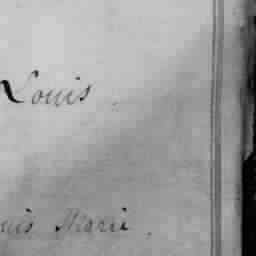 Louis.
uis Marie.